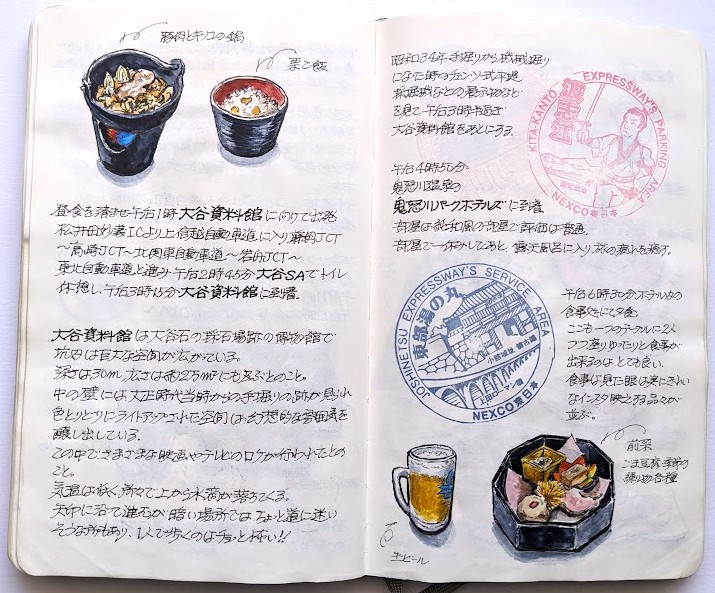 豚肉とキノコの鍋
栗ご飯
昼食を済ませ午后1時大谷資料館に向けて出発
松井田妙義ICより上信越自動車道に入り藤岡JCT
〜高崎JCT〜北関東自動車道〜岩舟JCT〜
東北自動車道と進み午后2時45分大谷SAでトイレ
休憩し、午后3時15分大谷資料館に到着。
大谷資料館は大谷石の採石場跡の博物館で
坑内は巨大な空間が広がっている。
深さは30m、広さは約2万m²にも及ぶとのこと。
中の壁には大正時代当時からの手掘りの跡が見られ
色とりどりにライトアップされた空間は幻想的な雰囲気を
醸し出している。
この中でさまざまな映画やテレビのロケが行われたとの
こと。
気温は低く、所々で上から水滴が落ちてくる。
矢印に沿って進むが暗い場所ではちょっと道に迷い
そうな所もあり、1人で歩くのはチョット怖い!!
昭和34年手掘りから機械掘り
になた時のチェンソー式平場
採掘機などの展示物など
を見て午后3時半過ぎ
大谷資料館をあとにする。
KITA-KANTO EXPRESSWAY'S PARKING AREA
波志江
国定忠治
NEXCO東日本
午后4時50分
鬼怒川温泉の
鬼怒川パークホテルズに到着
部屋は純和風の部屋で評価は普通。
部屋で一休みしてあと、露天風呂に入り旅の疲れを癒す。
JOSHINETSU EXPRESSWAY'S SERVICE AREA
東部湯の丸
小諸城址 懐古園
上田ローマン橋
NEXCO東日本
午后6時30分ホテル内の
食事処にて夕食
ここも一つのテーブルに2人
づつ座りゆったりと食事が
出来るのはとても良い。
食事は見た眼は実にきれい
なインスタ映えする品々が
並ぶ。
前菜
ごま豆腐、季節の
練り物各種
生ビール